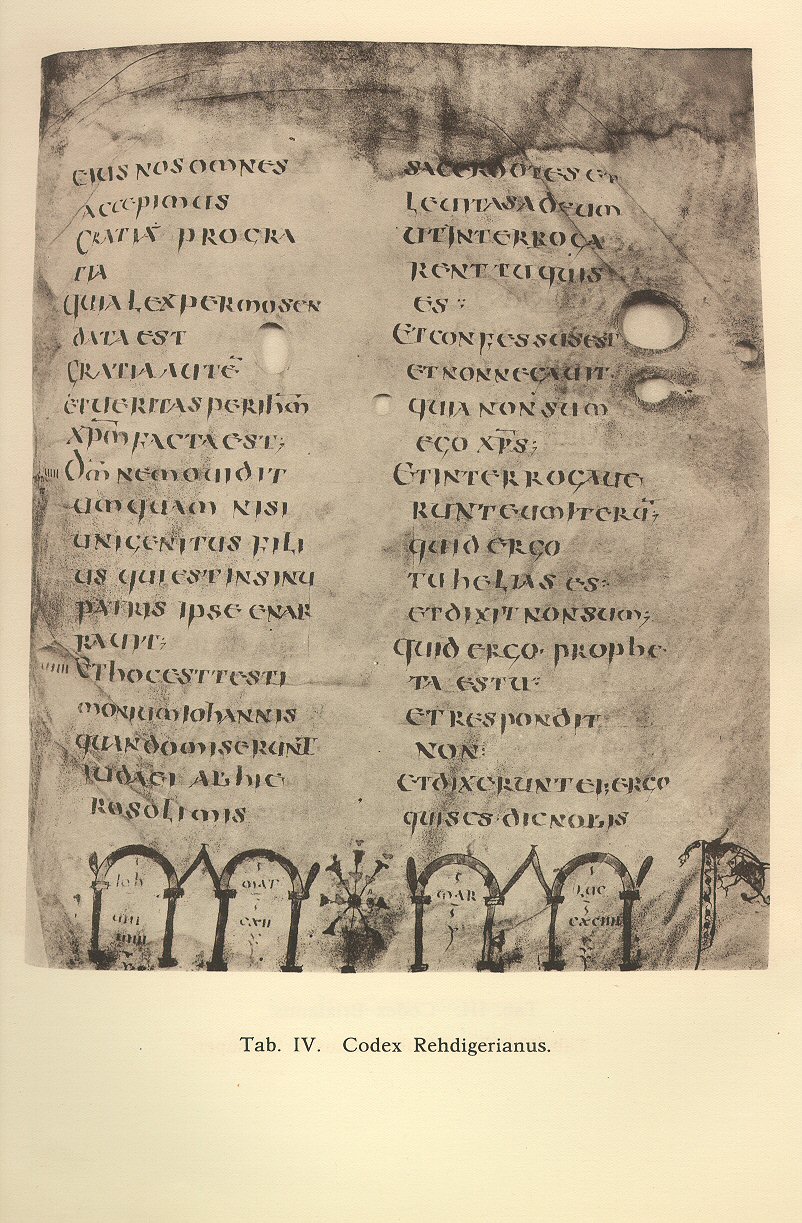 EIUS NOS OMNES
ACCEPIMUS
GRATIĀ PRO GRA
TIA
QUIA LEX PER MOSEN
DATA EST
GRATIA AUTĒ
ET UERITAS PER IHM̅
XPM̅ FACTA EST;
DM̅ NEMO UIDIT
UMQUAM NISI
UNIGENITUS FILI
US QUI EST IN SINU
PATRIS IPSE ENAR
RAUIT;
ET HOC EST TESTI
MONIUM IOHANNIS
QUANDO MISERUNT
IUDAEI AB HIE
ROSOLIMIS
SACERDOTES ET
LEUITAS AD EUM
UT INTERROGA
RENT TU QUIS
ES:
ET CONFESSUS EST
ET NON NEGAUIT
QUIA NON SUM
EGO XPS̅;
ET INTERROGAUE
RUNT EUM ITERŪ;
QUID ERGO
TU HELIAS ES:
ET DIXIT NON SUM;
QUID ERGO· PROPHE
TA ES TU:
ET RESPONDIT
NON:
ET DIXERUNT EI; ERGO
QUIS ES· DIC NOBIS
IOH
MAT
CXII
MAR
LUC
Tab. IV. Codex Rehdigerianus.